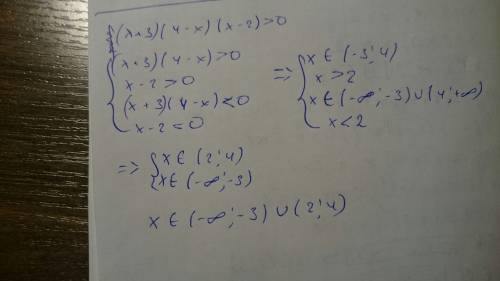 (x+3)(4-x)(x-2)>0
{(x+3)(4-x)>0
x-2>0
(x+3)(4-x)<0
x-2=0
=> {x∈(-3;4)
x>2
x∈(-∞;-3)∪(4;+∞)
x<2
=> {x∈(2;4)
x∈(-∞;-3)
x∈(-∞;-3)∪(2;4)